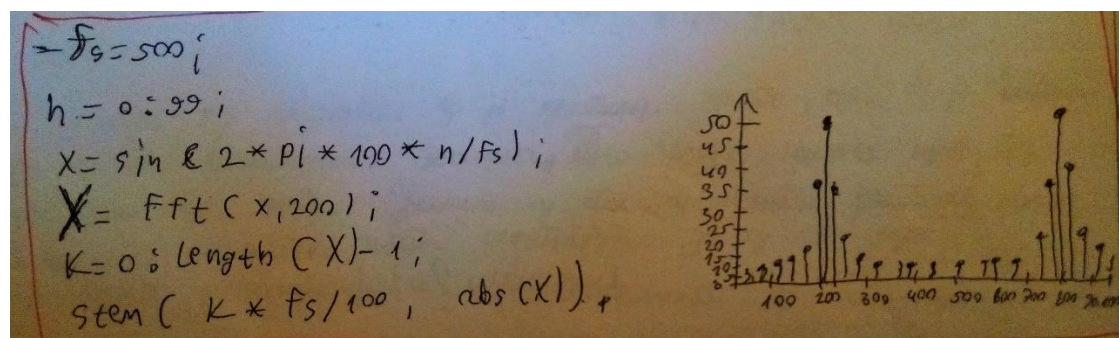 - fs=500;
n = 0:99;
x= sin ( 2* pi * 100 * n/fs);
X= fft (x,200);
K=0: length (X)-1;
stem ( K * fs/100, abs(X)).
50
45
40
35
30
25
20
15
10
100 200 300 400 500 600 700 800